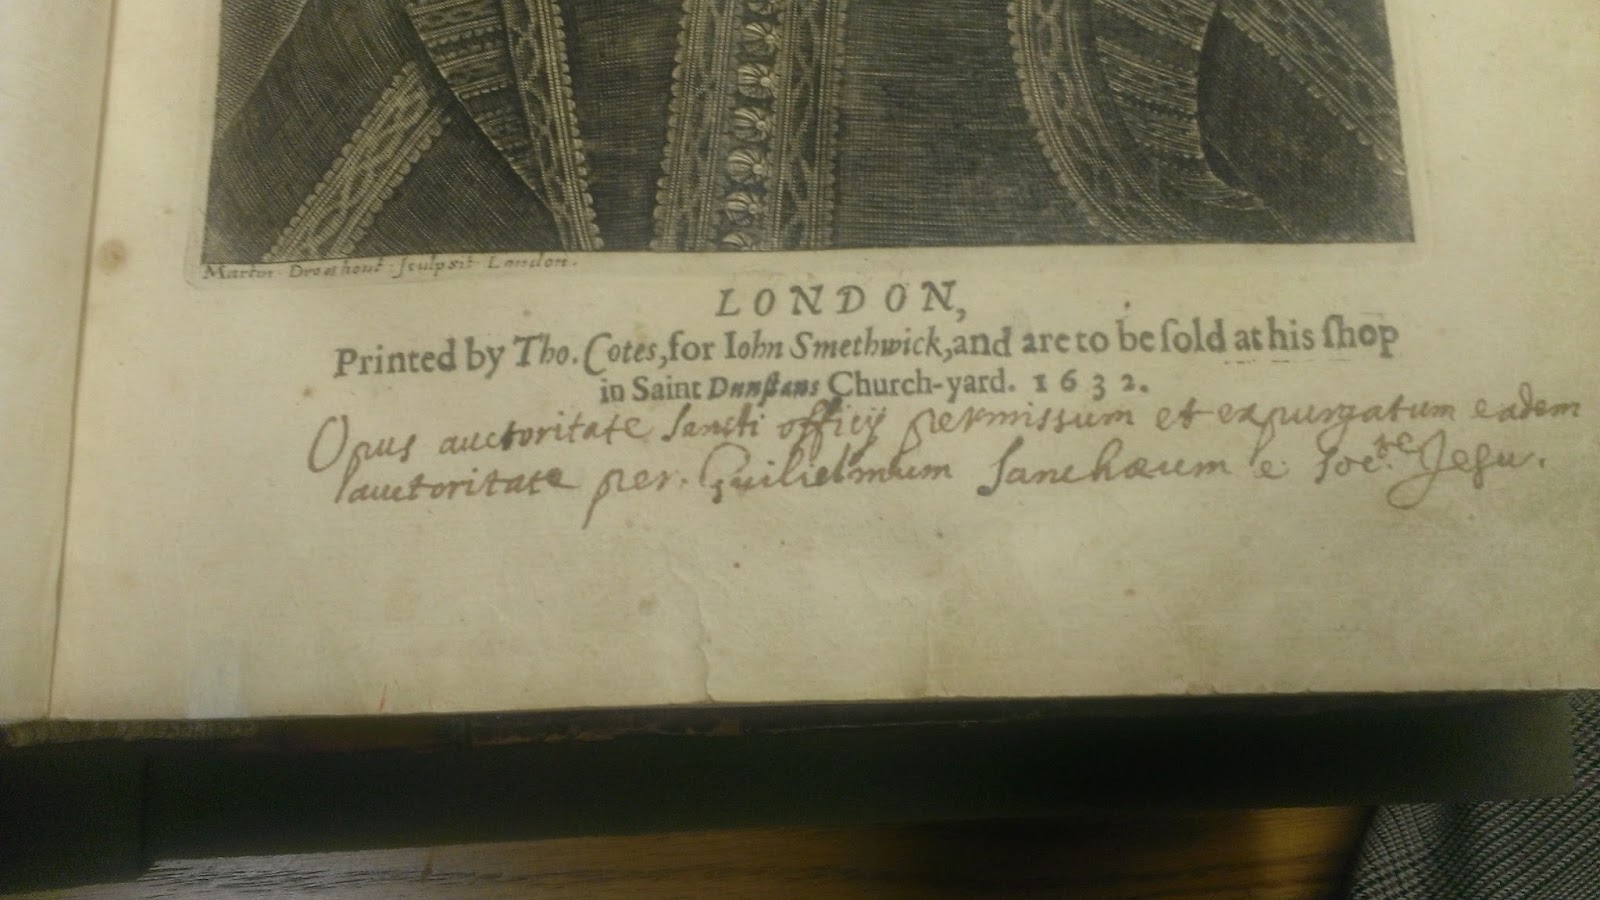 Martin Droeshout sculpsit London.
LONDON,
Printed by Tho. Cotes, for Iohn Smethwick, and are to be ſold at his ſhop
in Saint Dunſtans Church-yard. 1632.
Opus auctoritate Sancti officij permissum et expurgatum eadem
auctoritate per. Guilielmum Sanchæum e Soc.te Jesu.